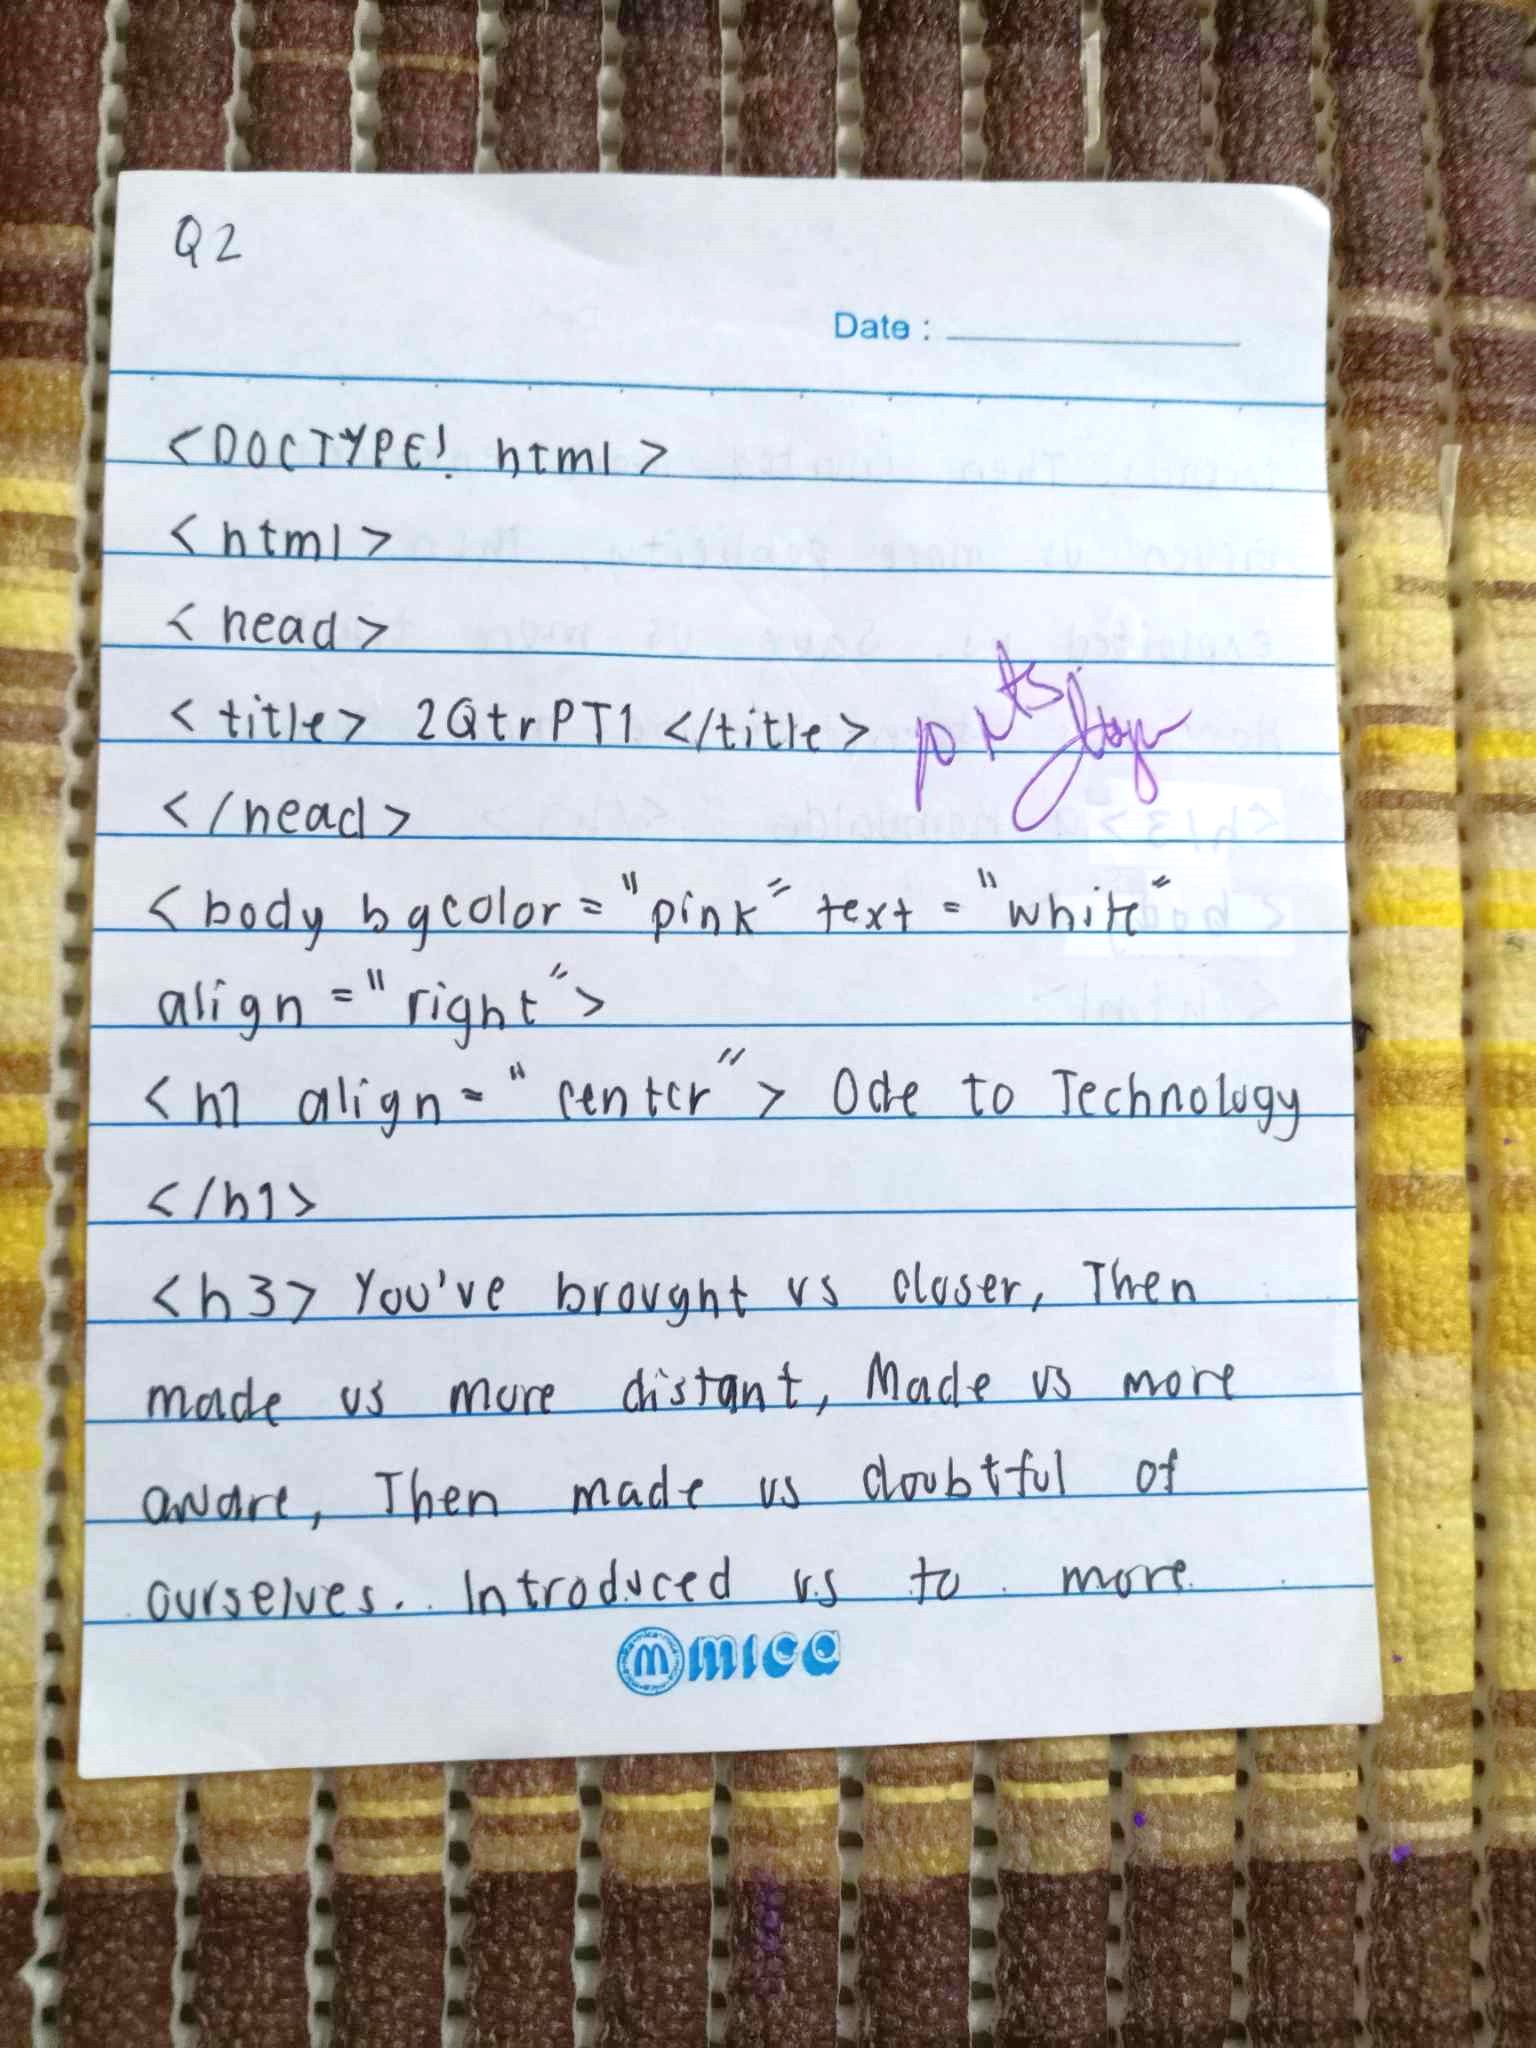 Q2
Date :
<DOCTYPE! html>
<html>
<head>
<title> 2QtrPT1 </title>
</head>
<body bgcolor = "pink" text = "white"
align = "right">
<h1 align = "center"> Ode to Technology
</h1>
<h3> You've brought us closer, Then
made us more distant, Made us more
aware, Then made us doubtful of
ourselves. Introduced us to more
mica